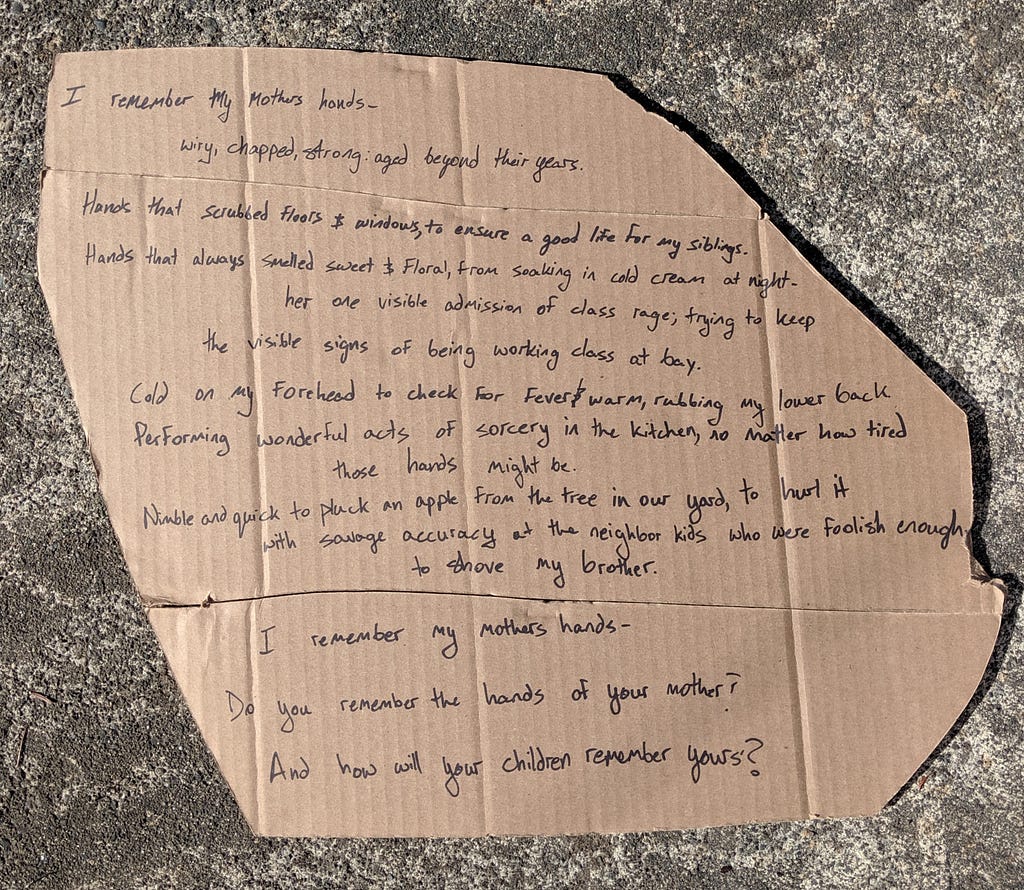 I remember My Mothers hands-
wiry, chapped, strong: aged beyond their years.
Hands that scrubbed floors & windows, to ensure a good life for my siblings.
Hands that always smelled sweet & Floral, from soaking in cold cream at night-
her one visible admission of class rage; trying to keep
the visible signs of being working class at bay.
Cold on my Forehead to check for Fever & warm, rubbing my lower back
Performing wonderful acts of sorcery in the kitchen, no matter how tired
those hands might be.
Nimble and quick to pluck an apple from the tree in our yard, to hurl it
with savage accuracy at the neighbor kids who were foolish enough
to shove my brother.
I remember my mothers hands-
Do you remember the hands of your mother?
And how will your children remember yours?